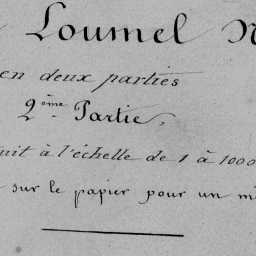 Loumel
en deux parties
2ème Partie.
uit à l'échelle de 1 à 1000
sur le papier pour un m